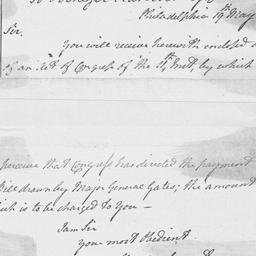 Philadelphia 19th May
Sir,
You will receive herewith enclosed a
of an Act of Congress of the 15th Inst, by which
perceive that Congress has directed the payment
Bill drawn by Major General Gates; the amount
which is to be charged to You —
I am Sir
your most Obedient